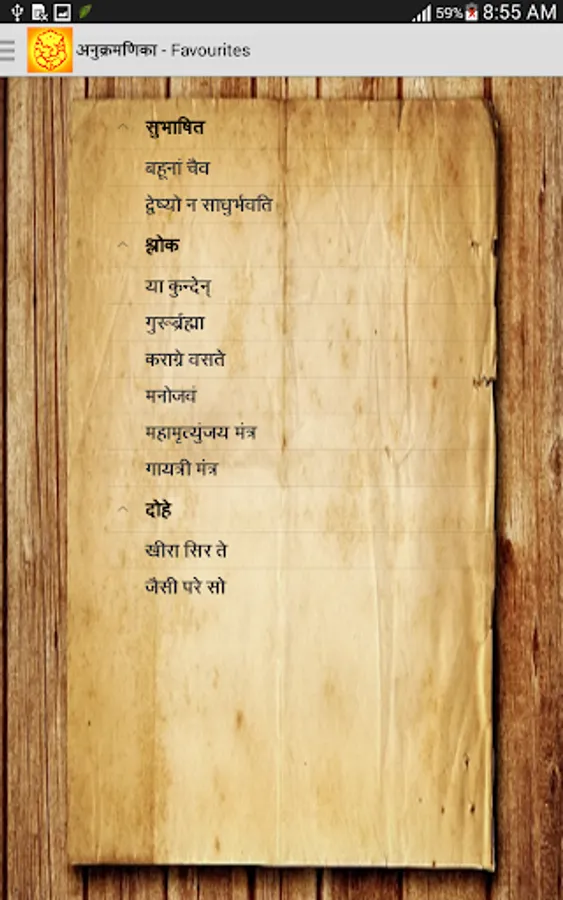 59% 8:55 AM
अनुक्रमणिका - Favourites
सुभाषित
बहूनां चैव
द्वेष्यो न साधुर्भवति
श्लोक
या कुन्देन्
गुरूर्ब्रह्मा
कराग्रे वसते
मनोजवं
महामृत्युंजय मंत्र
गायत्री मंत्र
दोहे
खीरा सिर ते
जैसी परे सो